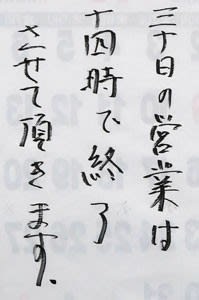 三十日の営業は
十四時で終了
させて頂きます。